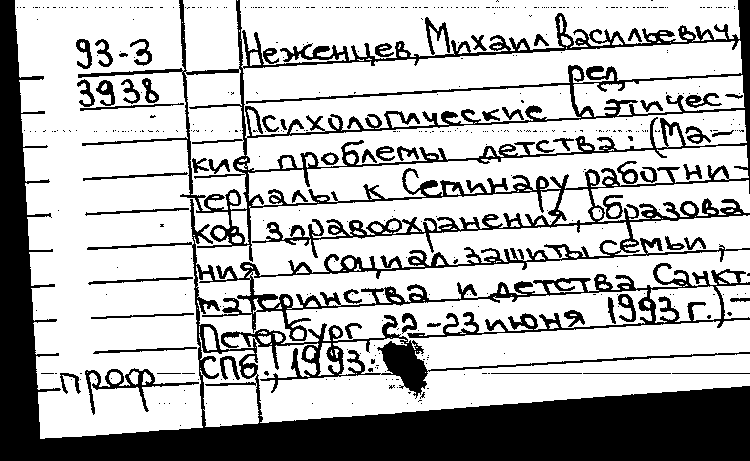 93-3
3938
Неженцев, Михаил Васильевич,
ред.
Психологические и этичес-
кие проблемы детства: (Ма-
териалы к Семинару работни-
ков здравоохранения, образова
ния и социал. защиты семьи,
материнства и детства, Санкт-
Петербург, 22-23 июня 1993 г.).-
СПб., 1993.
проф